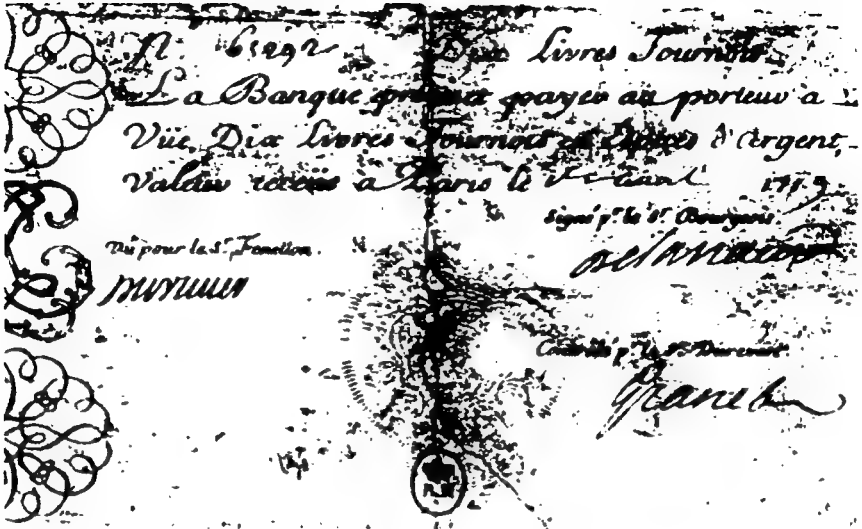 N. 65292 Dix Livres Tournois.
La Banque promet payer au porteur à
Vüe Dix Livres Tournois en Espèces d'Argent,
valeur reçeüe à Paris le 171
Signé p.r le S.r Bourgeois.
Vû pour le S.r Fenellon.
Controllé p.r le S.r Durevest.
Granet